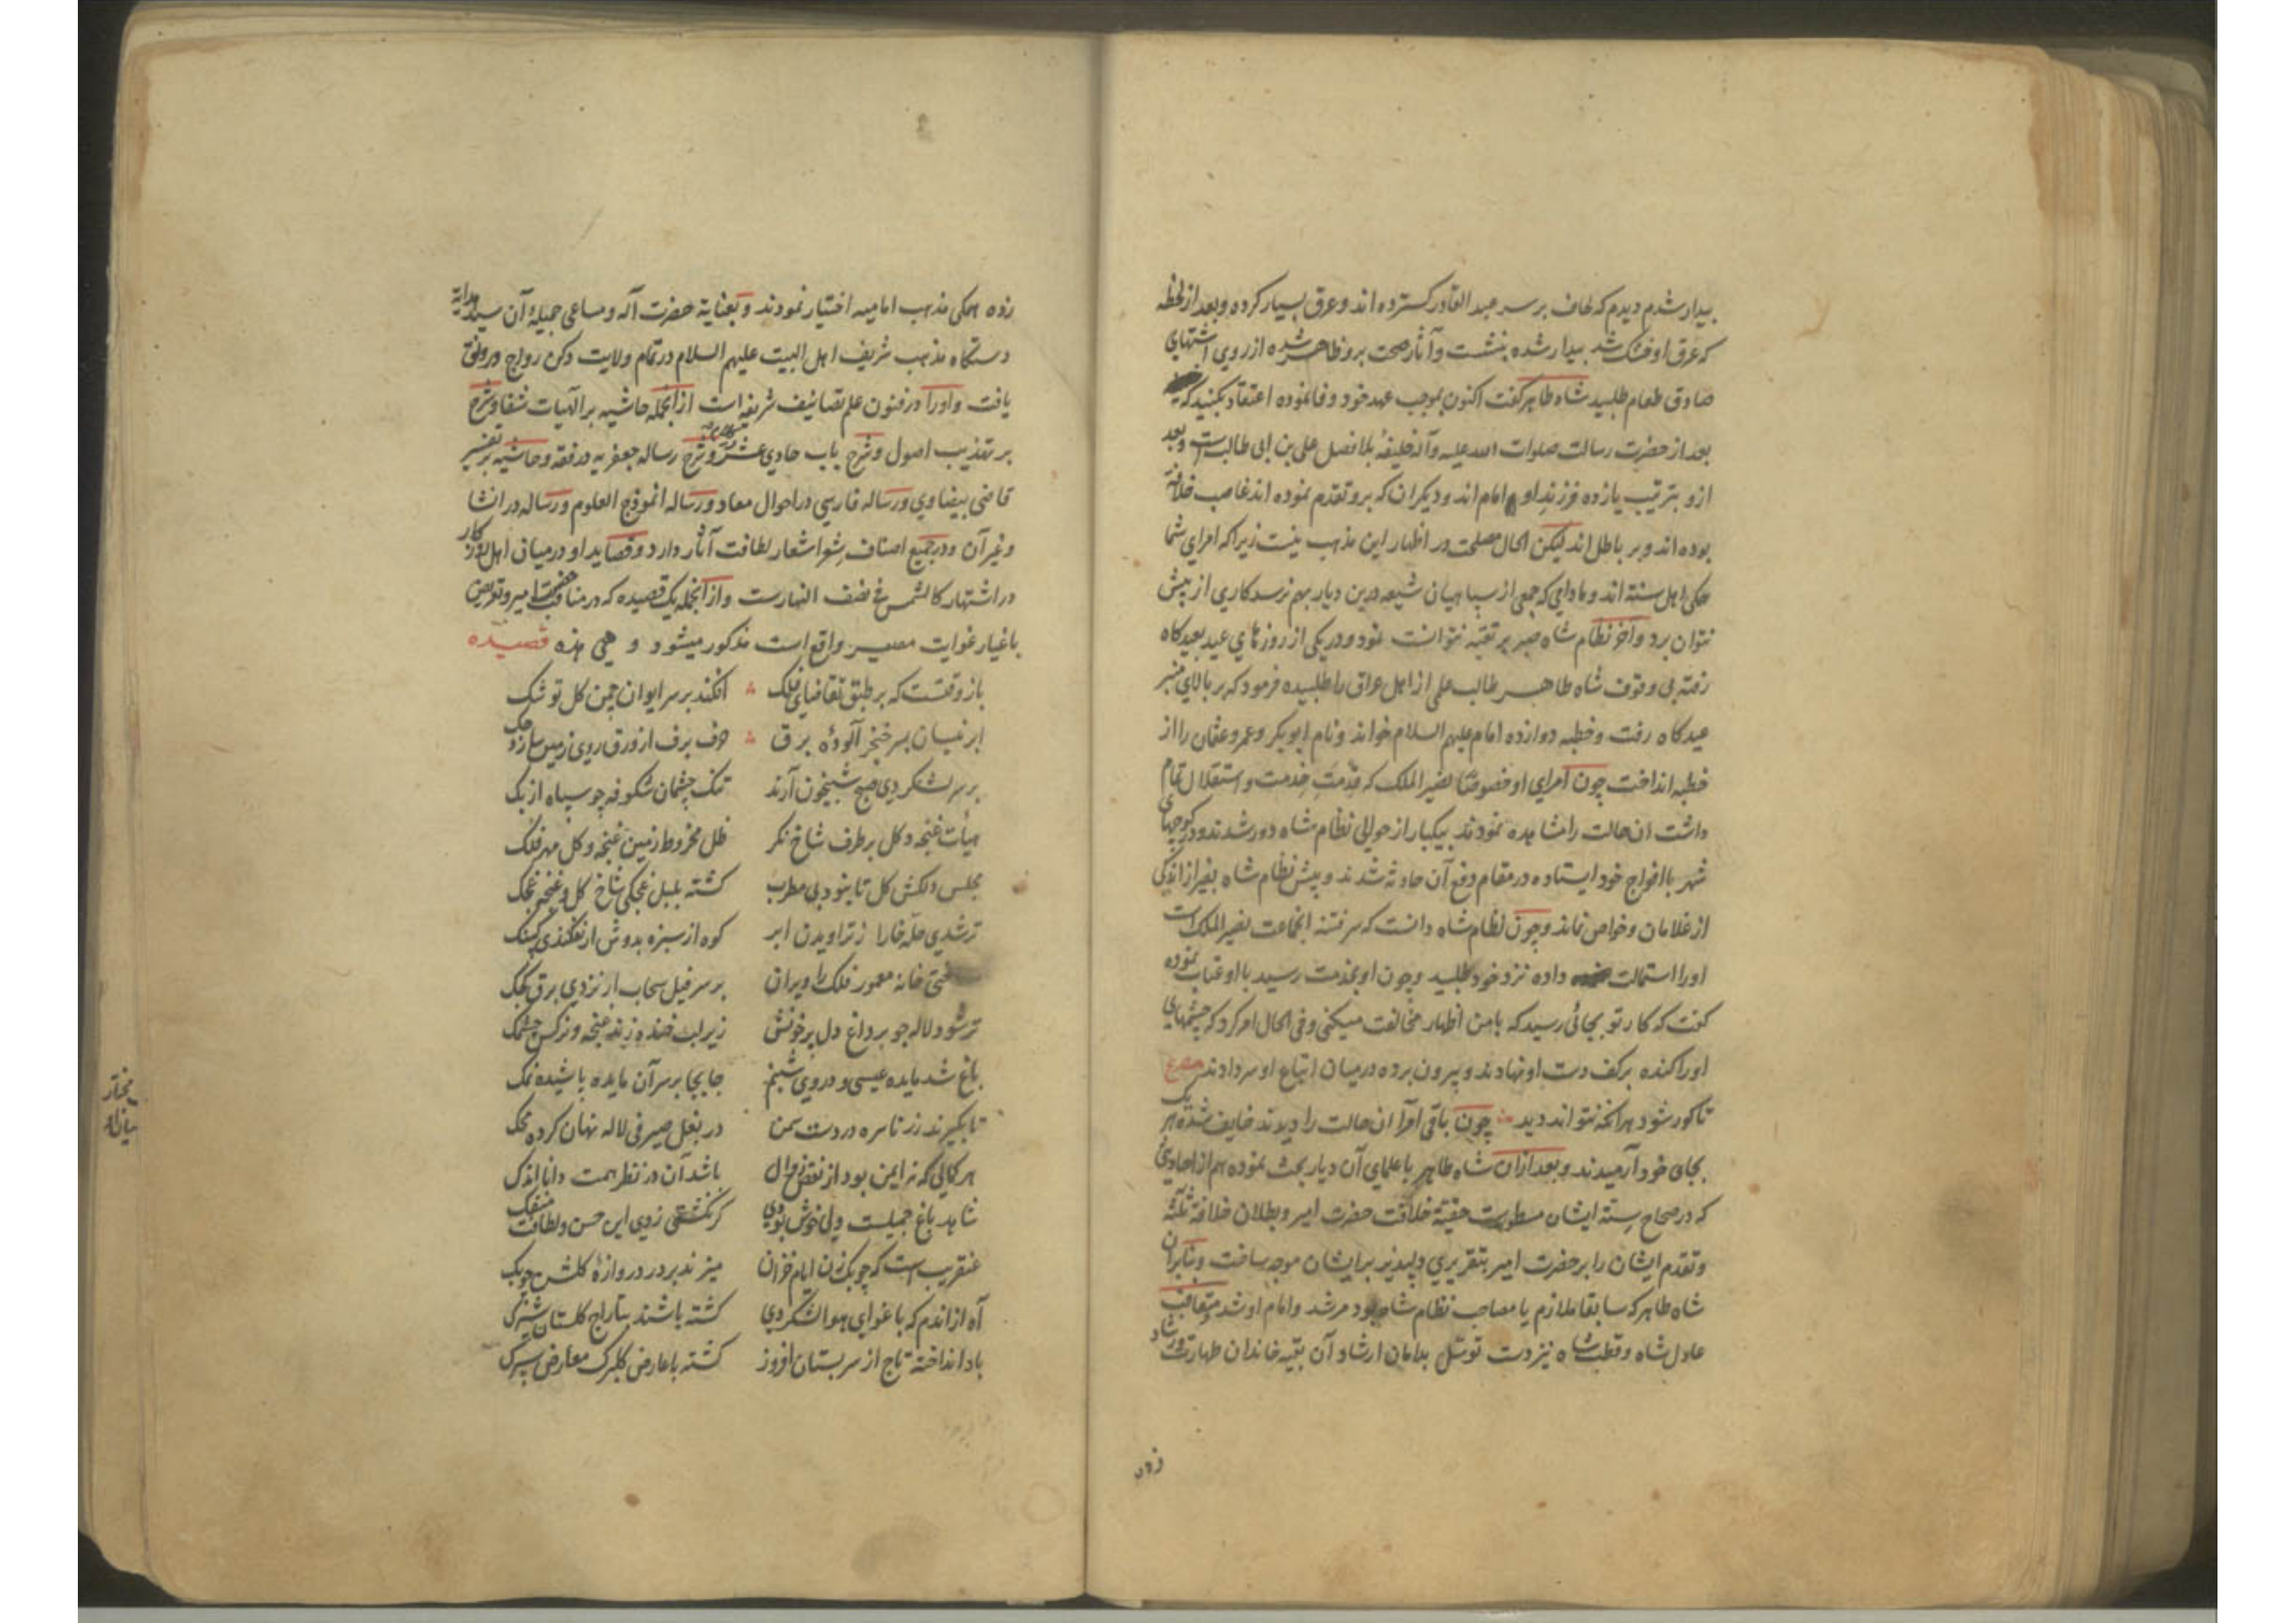 بیدار شدم دیدم که لحاف بر سر عبد القادر گسترده اند و عرق بسیار کرده و بعد از لحظه
که عرق او خشک شد بیدار شده بنشست و آثار صحت برو ظاهر شده از روی اشتهای
صادق طعام طلبید شاه طاهر گفت اکنون بموجب عهد خود وفا نموده اعتقاد بکنید که
بعد از حضرت رسالت صلوات الله علیه و آله خلیفۀ بلا فصل علی بن ابی طالب است و بعد
ازو بترتیب یازده فرزند او امام اند و دیگران که برو تقدم نموده اند غاصب خلافة
بوده اند و بر باطل اند لیکن الحال مصلحت در اظهار این مذهب نیست زیرا که امرای شما
همکی اهل سنة اند و مادامی که جمعی از سپاهیان شیعه درین دیار بهم نرسد کاری از پیش
نتوان برد و آخر نظام شاه صبر بر تقیه نتوانست نمود و در یکی از روزهای عید بعیدگاه
رفته بی وقوف شاه طاهر طالب علمی از اهل عراق را طلبیده فرمود که بر بالای منبر
عیدگاه رفت و خطبه دوازده امام علیهم السلام خواند و نام ابوبکر و عمر و عثمان را از
خطبه انداخت چون امرای او خصوصا نصیر الملک که قدمت خدمت و استقلال تمام
داشت ان حالت را مشاهده نمودند بیکبار از حوالی نظام شاه دور شدند و در کوچهای
شهر با افواج خود ایستاده در مقام دفع آن حادثه شدند و پیش نظام شاه بغیر از اندکی
از غلامان و خواص نماند و چون نظام شاه دانست که سر فتنه انجماعت نصیر الملک است
اورا استمالت داده نزد خود طلبید و چون او بخدمت رسید با او عتاب نموده
گفت که کار تو بجائی رسید که با من اظهار مخالفت میکنی و فی الحال امر کرد که چشمهای
اورا کنده بر کف دست او نهادند و بیرون برده در میان اتباع او سر دادند مصرع
تا کور شود هر انکه نتواند دید چون باقی امرا آن حالت را دیدند خایف شده هر یک
بجای خود آرمیدند و بعد از ان شاه طاهر با علمای آن دیار بحث نموده هم از احادیث
که در صحاح سته ایشان مسطورست حقیة خلافت حضرت امیر و بطلان خلافة ثلثه
و تقدم ایشان را بر حضرت امیر بتقریری دلپذیر بر ایشان موجه ساخت و بنابران
شاه طاهر که سابقا ملازم یا مصاحب نظام شاه بود مرشد و امام او شد متعاقب
عادل شاه و قطب شاه نیز دست توسل بدامان ارشاد آن بقیه خاندان طهارت و رشاد
زده
زده همکی مذهب امامیه اختیار نمودند و بعنایة حضرت آله و مساعی جمیلۀ آن سید هدایة
دستگاه مذهب شریف اهل البیت علیهم السلام در تمام ولایت دکن رواج و رونق
یافت و اورا در فنون علم تصانیف شریفه است از انجمله حاشیه بر الهیات شفا و شرح
بر تهذیب اصول و شرح باب حادی عشر و شرح رساله جعفریه در فقه و حاشیه بر تفسیر
قاضی بیضاوی و رساله فارسی در احوال معاد و رساله انموذج العلوم و رساله در انشا
و غیر آن و در جمیع اصناف شعر اشعار لطافت آثار دارد و قصاید او در میان اهل روزکار
در اشتهار کالشمس فی نصف النهارست و از انجمله یک قصیده که در منقبت حضرت امیر و تعریض
باغیار غوایت مصیر واقع است مذکور میشود و هی هذه قصیده
باز وقتست که بر طبق تقاضای فلک افکند بر سر ایوان چمن گل توشک
ابر نیسان بسر خنجر آلودۀ برق حرف برف از ورق روی زمین سازد حک
بر سر لشکر دی صبح شبیخون آرند تنک چشمان شکوفه چو سپاه ازبک
هیأت غنچه و گل بر طرف شاخ نگر ظل مخروط زمین غنچه و گل مهر فلک
مجلس دلکش گل تا بنود بی مطرب گشته بلبل غجکی شاخ گل و غنچه غجک
تر شدی حله خارا ز تراویدن ابر کوه از سبزه بدوش ار نفکندی کپنک
خانه معمور فلک را ویران بر سر فیل سحاب ار نزدی برق کجک
ترشود لاله چو بر داغ دل پر خونش زیر لب خنده زند غنچه و نرگس چشمک
باغ شد مایده عیسی و در وی شبنم جابجا بر سر آن مایده پاشیده نمک
تا بگیرند زر ناسره در دست سمن در بغل صیرفی لاله نهان کرده محک
هر کمالی که نه ایمن بود از نقص زوال باشد آن در نظر همت دانا اندک
شاهد باغ جمیلست ولی خوش بودی گر نگشتی ز وی این حسن و لطافت منفک
عنقریب است که چوبک زن ایام خزان میزند بر در دروازۀ گلشن چوبک
آه از اندم که باغوای هوا لشکر دی گشته باشند بتاراج گلستان شیرک
باد انداخته تاج از سر بستان افروز گشته با عارض گلبرک معارض سپرک